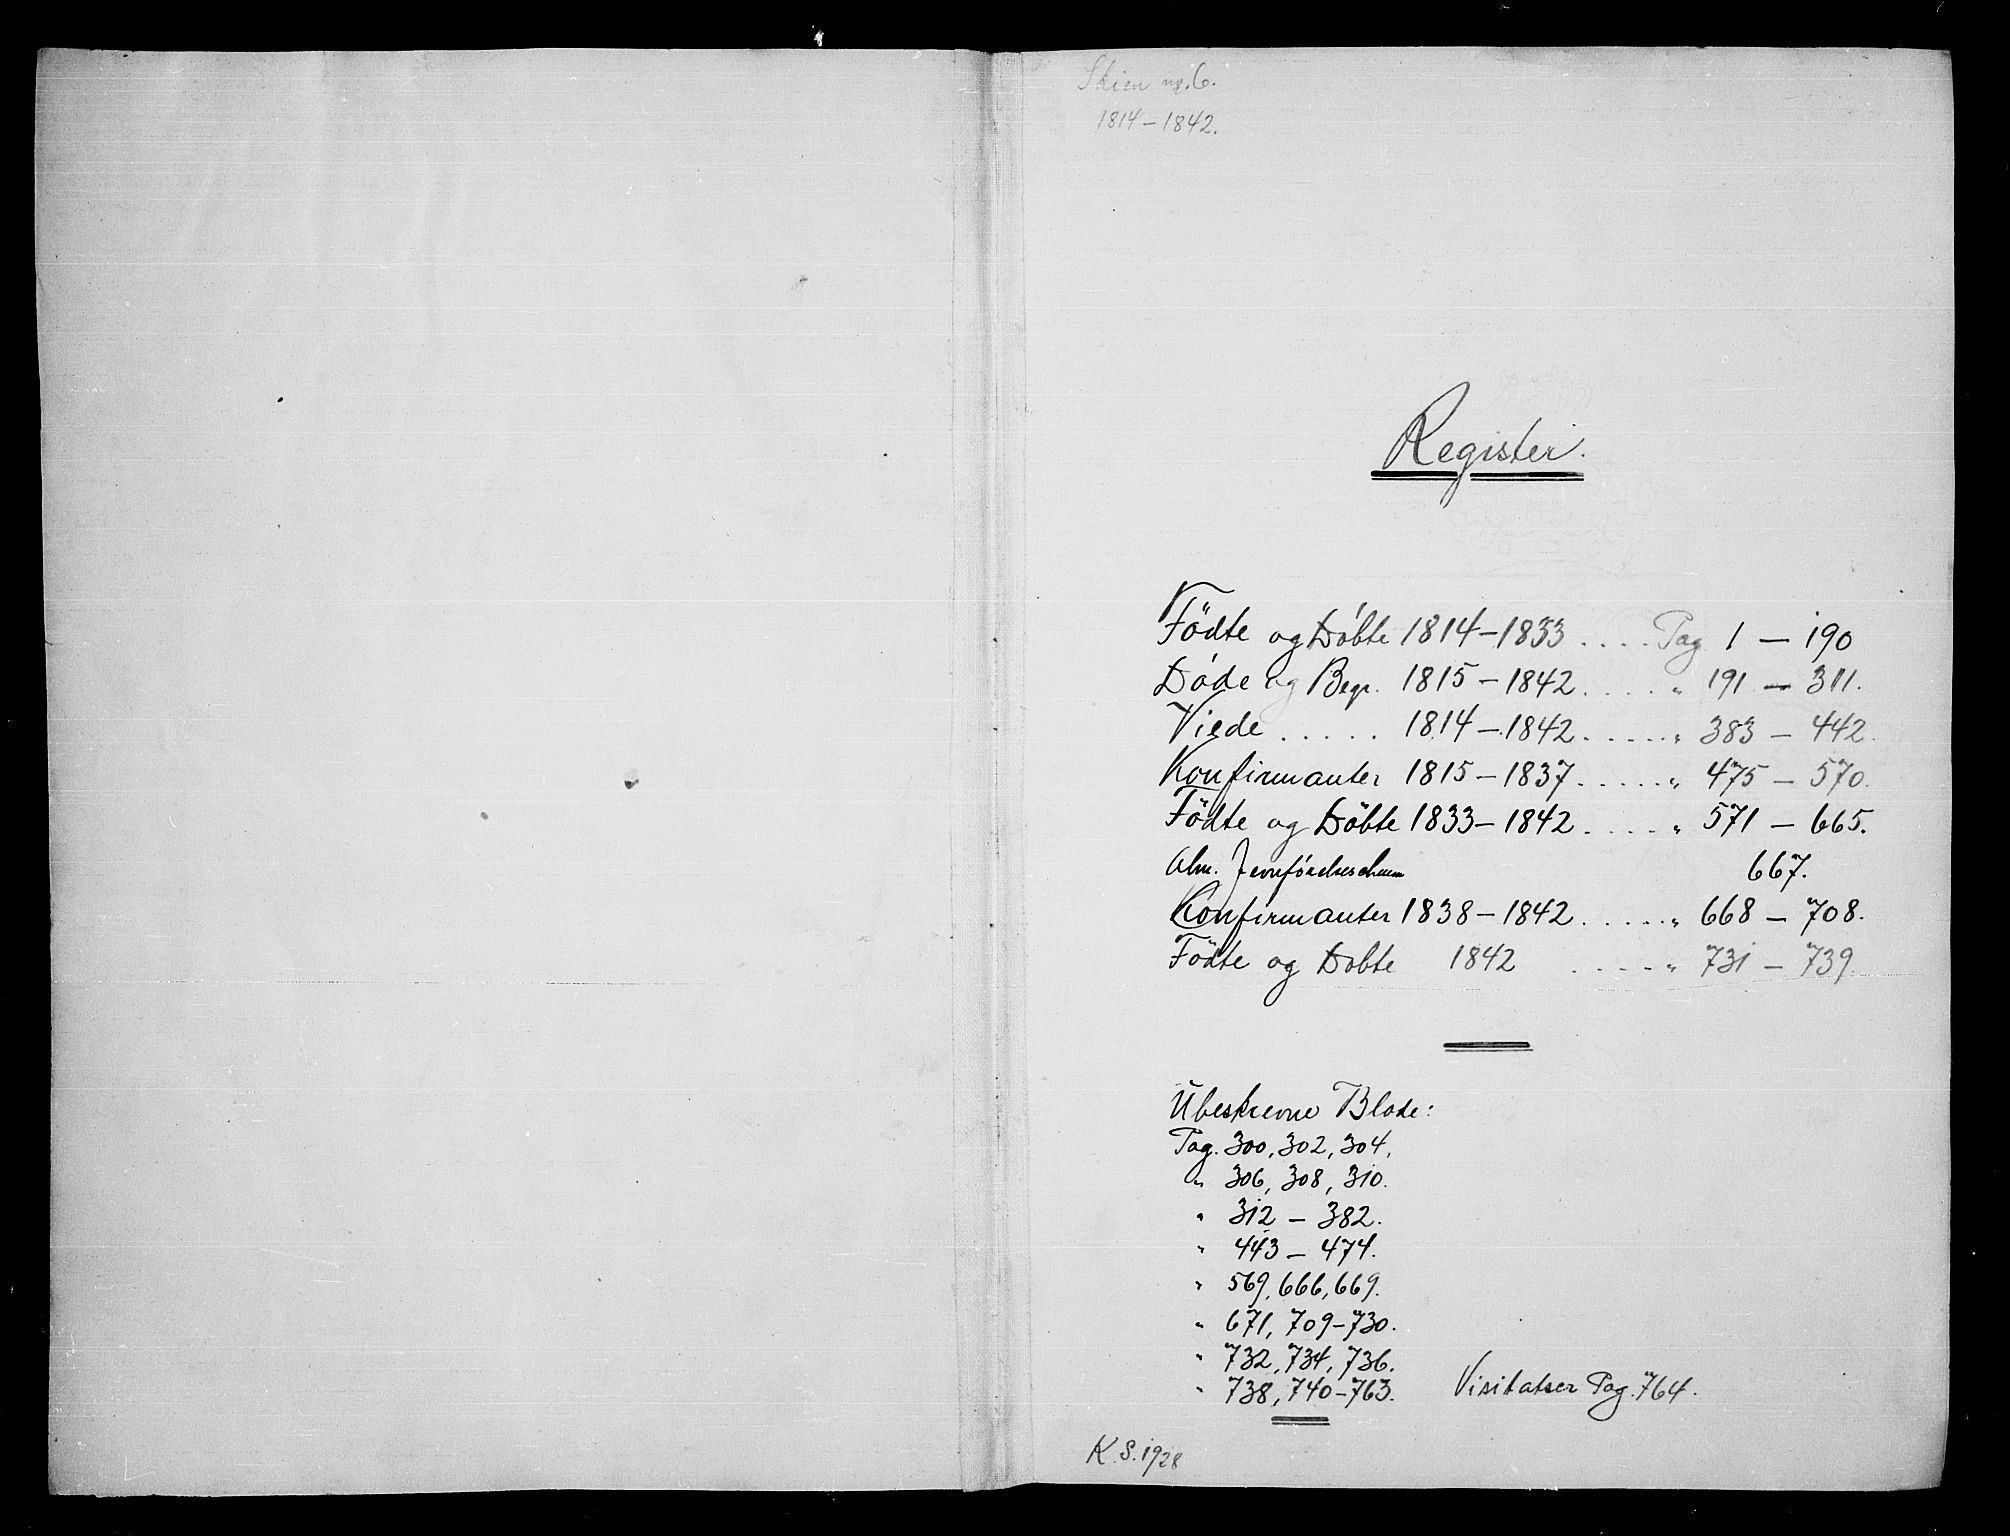 Skien nr. 6.
1814 – 1842.
Register.
Födte og Döbte 1814 – 1833 .... Pag 1 – 190
Döde og Begr. 1815 – 1842 .... „ 191 – 311.
Viede ..... 1814 – 1842 ..... „ 383 – 442.
Konfirmanter 1815 – 1837 ..... „ 475 – 570.
Födte og Döbte 1833 – 1842 .... „ 571 – 665.
Alm. 667.
Confirmanter 1838 – 1842 ..... „ 668 – 708.
Födte og Döbte 1842 .... „ 731 – 739.
Ubeskrevne Blade:
Pag. 300, 302, 304,
„ 306, 308, 310.
„ 312 – 382.
„ 443 – 474.
„ 569, 666, 669.
„ 671, 709 – 730.
„ 732, 734, 736.
„ 738, 740 – 763. Visitatser Pag. 764.
K. S. 1928